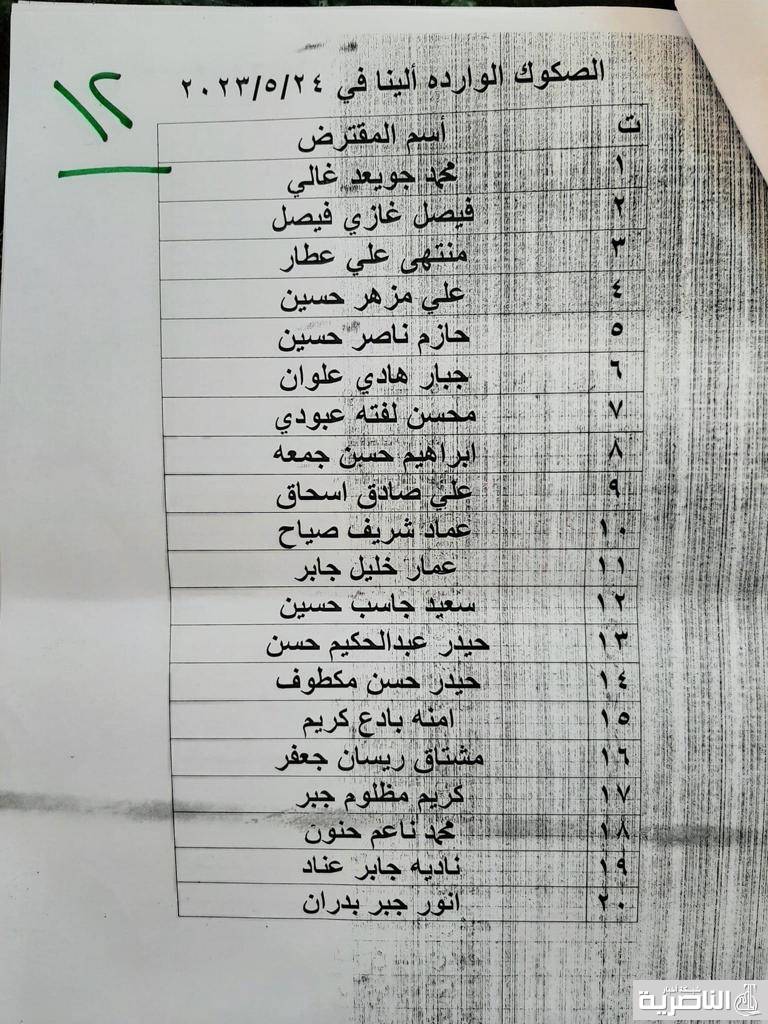 الصكوك الوارده ألينا في ٢٠٢٣/٥/٢٤
١٢
ت أسم المقترض
١ محمد جويعد غالي
٢ فيصل غازي فيصل
٣ منتهى علي عطار
٤ علي مزهر حسين
٥ حازم ناصر حسين
٦ جبار هادي علوان
٧ محسن لفته عبودي
٨ ابراهيم حسن جمعه
٩ علي صادق اسحاق
١٠ عماد شريف صياح
١١ عمار خليل جابر
١٢ سعيد جاسب حسين
١٣ حيدر عبدالحكيم حسن
١٤ حيدر حسن مكطوف
١٥ امنه بادع كريم
١٦ مشتاق ريسان جعفر
١٧ كريم مظلوم جبر
١٨ محمد ناعم حنون
١٩ ناديه جابر عناد
٢٠ انور جبر بدران
شبكة أخبار
الناصرية